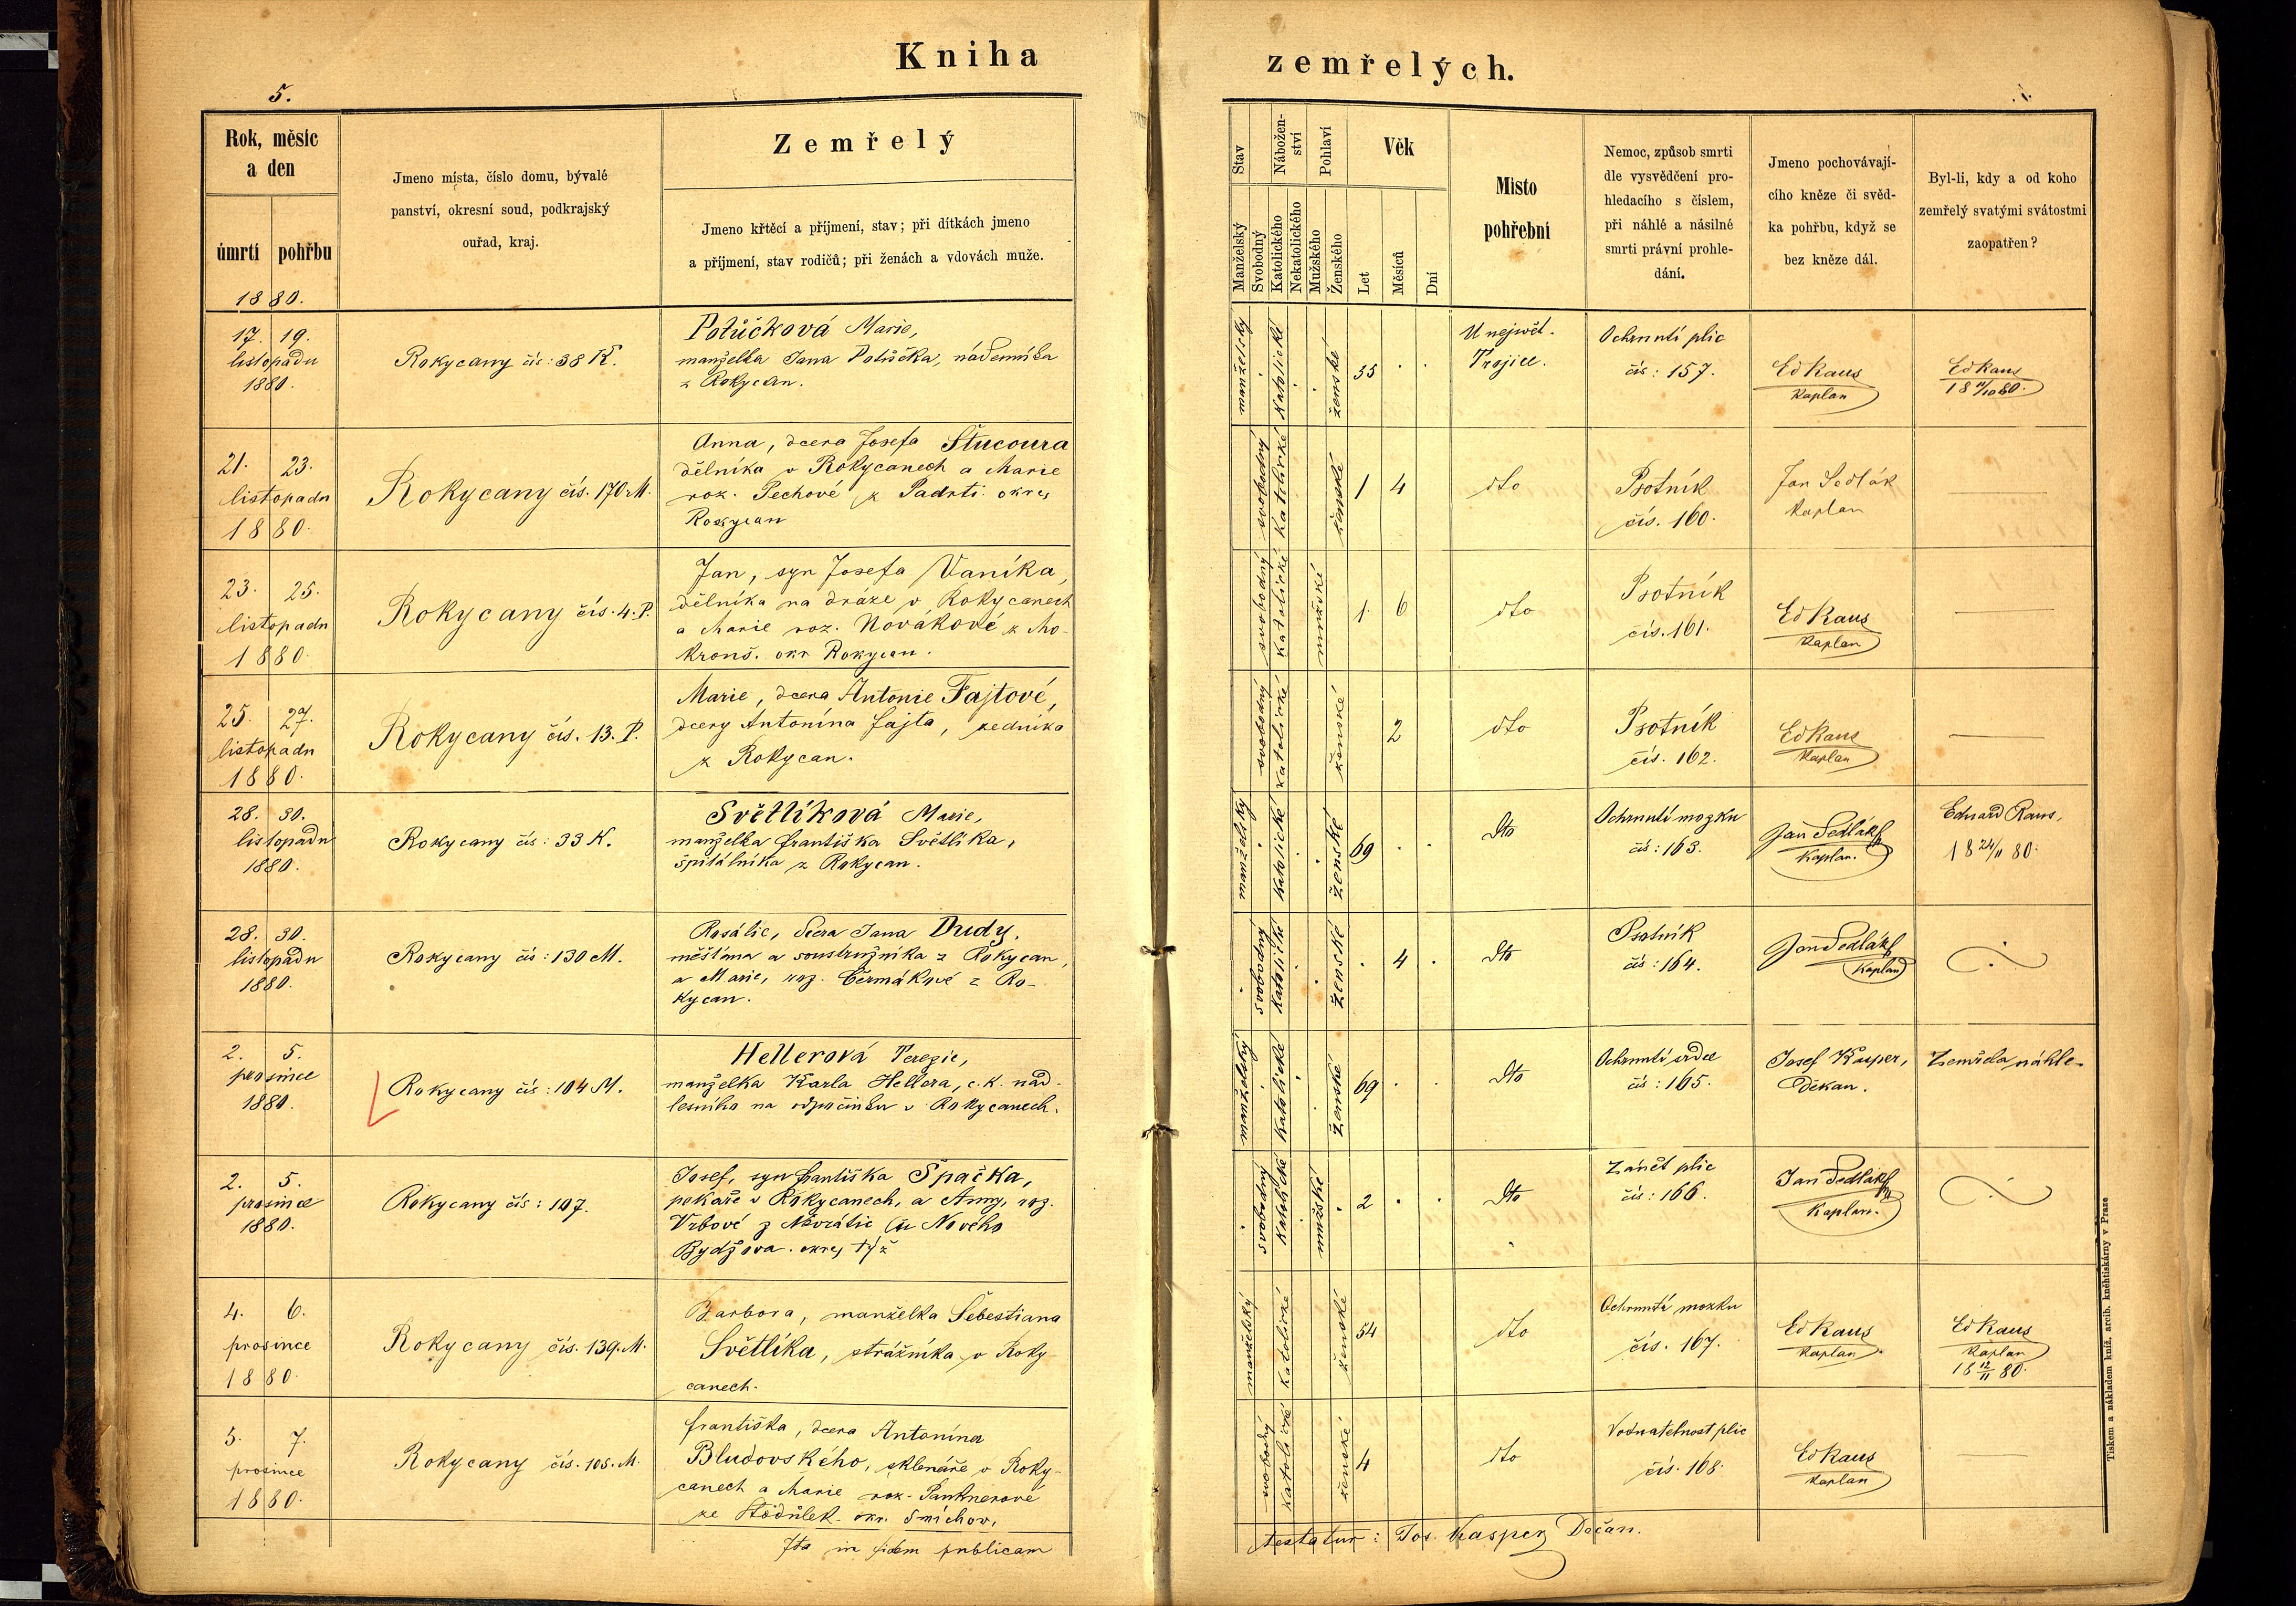 Kniha zemřelých.
5.
Rok, měsíc a den
úmrtí
pohřbu
Jmeno místa, číslo domu, bývalé
panství, okresní soud, podkrajský
ouřad, kraj.
Zemřelý
Jmeno křtěcí a příjmení, stav; při dítkách jmeno
a příjmení, stav rodičů; při ženách a vdovách muže.
Stav
Manželský
Svobodný
Nábožen-
ství
Katolického
Nekatolického
Pohlaví
Mužského
Ženského
Věk
Let
Měsíců
Dní
Místo
pohřební
Nemoc, způsob smrti
dle vysvědčení pro-
hledacího s číslem,
při náhlé a násilné
smrti právní prohle-
dání.
Jmeno pochovávají-
cího kněze či svěd-
ka pohřbu, když se
bez kněze dál.
Byl-li, kdy a od koho
zemřelý svatými svátostmi
zaopatřen?
1880.
17. 19.
listopadu
1880.
Rokycany čís: 38 K.
Potůčková Marie,
manželka Jana Potůčka, nádenníka
z Rokycan.
manželský
katolické
ženské
35
U nejsvět.
Trojice.
Ochrnutí plic
čís: 157.
Ed Raus
Kaplan
Ed Raus
21. 23.
listopadu
1880.
Rokycany čís. 170 M.
Anna, dcera Josefa Štucoura
dělníka v Rokycanech a Marie
roz. Pechové z Padrti okres
Rokycan
svobodný
katolické
ženské
1 4
dto
Psotník
čís. 160.
Jan Sedlák
Kaplan
23. 25.
listopadu
1880.
Rokycany čís. 4. P.
Jan, syn Josefa Vaníka,
dělníka na dráze v Rokycanech
a Marie roz. Novákové z Mo-
krouš. okr Rokycan.
svobodný
katolické
mužské
1. 6
dto
Psotník
čís. 161.
Ed Raus
Kaplan
25. 27.
listopadu
1880.
Rokycany čís. 13. P.
Marie, dcera Antonie Fajtové,
dcery Antonína Fajta, zedníka
z Rokycan.
svobodný
katolické
ženské
2
dto
Psotník
čís. 162.
Ed Raus
Kaplan
28. 30.
listopadu
1880.
Rokycany čís: 33 K.
Světlíková Marie,
manželka Františka Světlíka,
špitálníka z Rokycan.
manželský
katolické
ženské
69
dto
Ochrnutí mozku
čís: 163.
Jan Sedlák
Kaplan.
Eduard Raus,
18 24/11 80.
28. 30.
listopadu
1880.
Rokycany čís: 130 M.
Rosálie, dcera Jana Dudy,
měšťana a soustružníka z Rokycan,
a Marie, roz. Čermákové z Ro-
kycan.
svobodný
katolické
ženské
4
dto
Psotník
čís: 164.
Jan Sedlák
Kaplan
2. 5.
prosince
1880.
Rokycany čís: 104 M.
Hellerová Terezie,
manželka Karla Hellera, c. k. nad-
lesního na odpočinku v Rokycanech.
manželský
katolické
ženské
69
dto
Ochrnutí srdce
čís: 165.
Josef Kasper,
Děkan.
Zemřela náhle.
2. 5.
prosince
1880.
Rokycany čís: 107.
Josef, syn Františka Špačka,
pekaře v Rokycanech, a Anny, roz.
Vrbové z Nevrátic u Nového
Bydžova. okres týž
svobodný
katolické
mužské
2
dto
Zánět plic
čís: 166.
Jan Sedlák
Kaplan.
4. 6.
prosince
1880.
Rokycany čís. 139. M.
Barbora, manželka Šebestiana
Světlíka, strážníka v Roky-
canech.
manželský
katolické
ženské
54
dto
Ochrnutí mozku
čís. 167.
Ed Raus
Kaplan
Ed Raus
Kaplan
18 12/11 80.
5. 7.
prosince
1880.
Rokycany čís. 108. M.
Františka, dcera Antonína
Bludovského, sklenáře v Roky-
canech a Marie roz.
ze Stodůlek okr. Smíchov.
svobodný
katolické
ženské
4
dto
Vodnatelnost plic
čís. 168.
Ed Raus
Kaplan
Ita in fidem publicam
testatur: Jos. Kasper Děčan.
Tiskem a nákladem kníž. arcib. kněhtiskárny v Praze